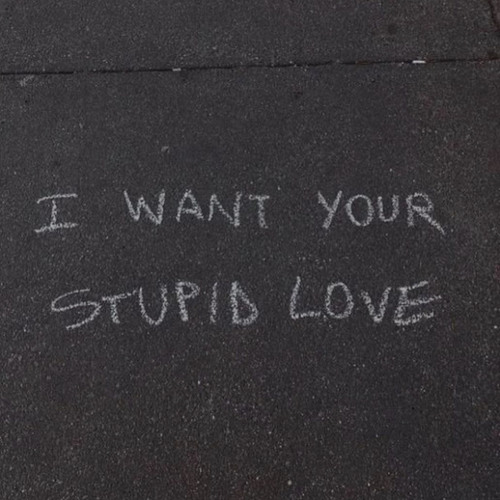 I WANT YOUR
STUPID LOVE